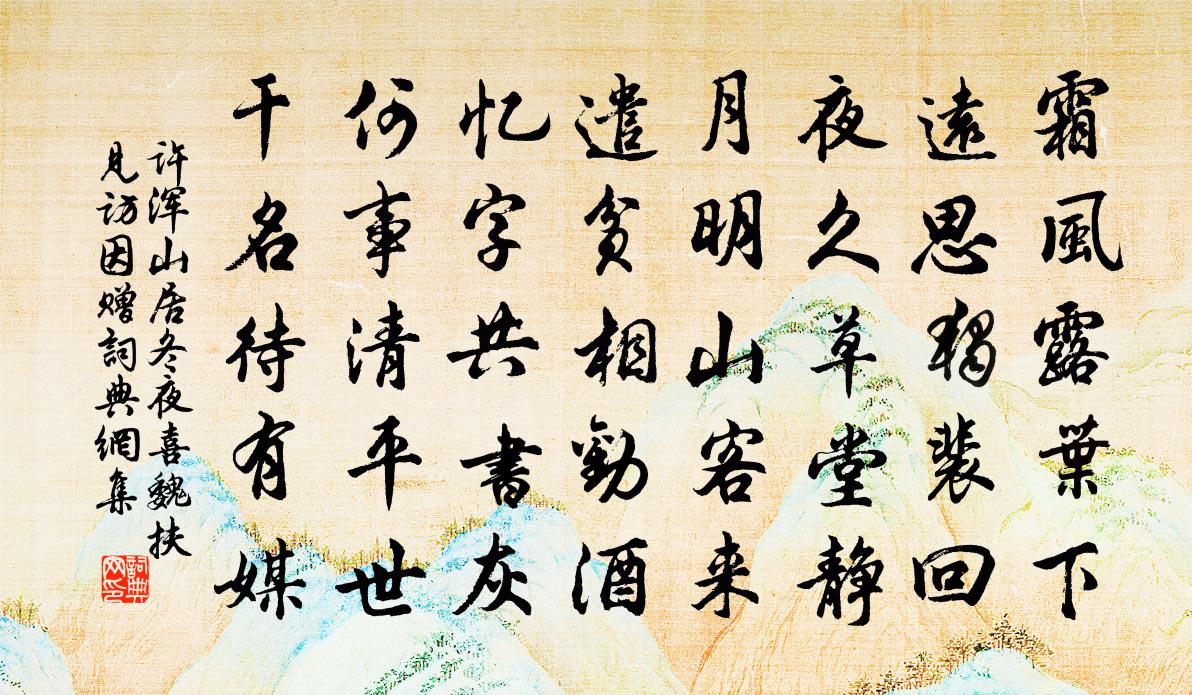 霜風露葉下
遠思獨裴回
夜久草堂静
月明山客来
遣貧相勸酒
忆字共書灰
何事清平世
干名待有媒
許渾山居冬夜喜魏扶
見訪因贈詞典網集
詞典网印